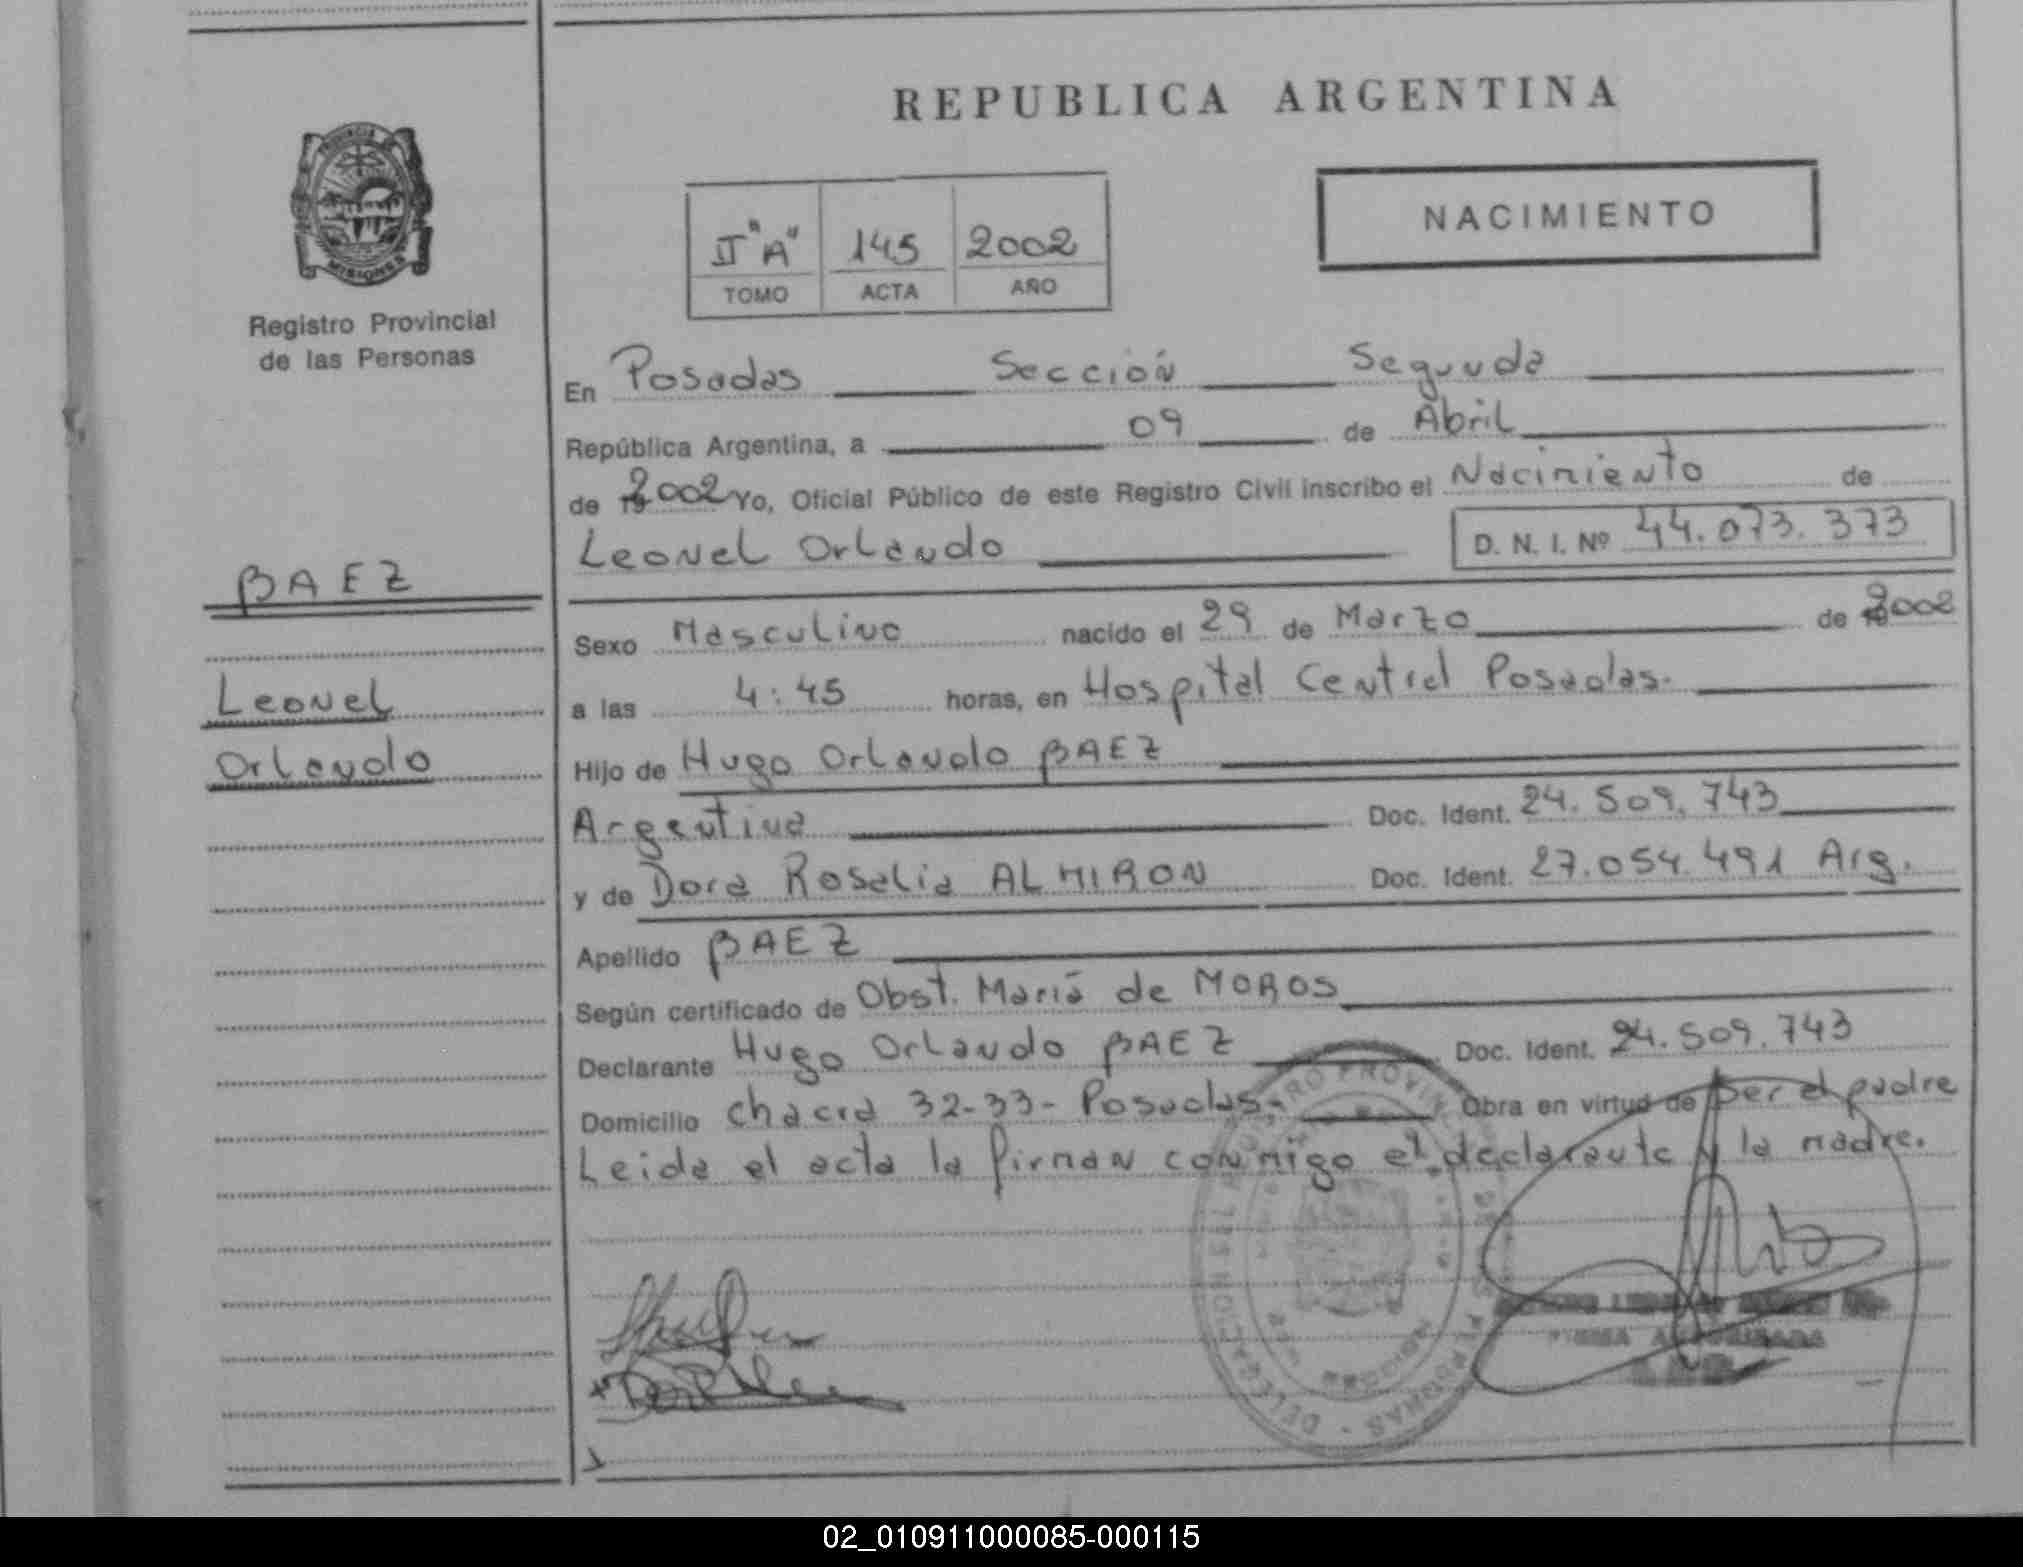 REPUBLICA ARGENTINA
PROVINCIA DE
MISIONES
Registro Provincial
de las Personas
NACIMIENTO
II "A" 145 2002
TOMO ACTA AÑO
En Posadas Sección Segunda
República Argentina, a 09 de Abril
de 2002 Yo, Oficial Público de este Registro Civil inscribo el Nacimiento de
Leonel Orlando D. N. I. Nº 44.073.373
BAEZ
Leonel
Orlando
Sexo Masculino nacido el 29 de Marzo de 2002
a las 4:45 horas, en Hospital Central Posadas.
Hijo de Hugo Orlando BAEZ
Argentina Doc. Ident. 24.509.743
y de Dora Rosalia ALMIRON Doc. Ident. 27.054.491 Arg.
Apellido BAEZ
Según certificado de Obst. Mariá de MOROS
Declarante Hugo Orlando BAEZ Doc. Ident. 24.509.743
Domicilio chacra 32-33- Posadas.- Obra en virtud de ser el padre
Leida el acta la firman conmigo el declarante y la madre.
02_010911000085-000115